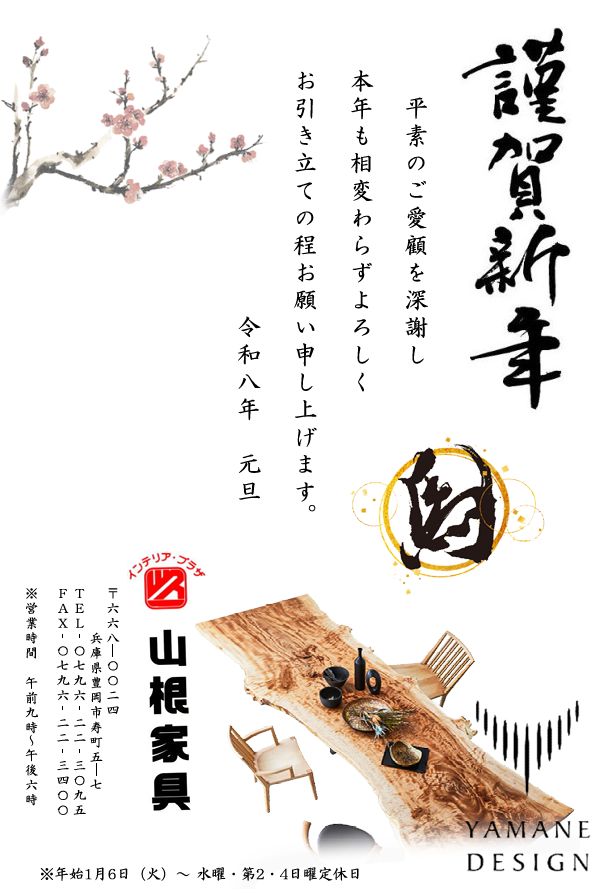 謹賀新年
平素のご愛顧を深謝し
本年も相変わらずよろしく
お引き立ての程お願い申し上げます。
令和八年　元旦
インテリア・プラザ
山根家具
〒六六八―〇〇二四
兵庫県豊岡市寿町五―七
ＴＥＬ-〇七九六-二二-三〇九五
ＦＡＸ-〇七九六-二二-三四〇〇
※営業時間　午前九時～午後六時
YAMANE
DESIGN
※年始1月6日（火）～ 水曜・第2・4日曜定休日